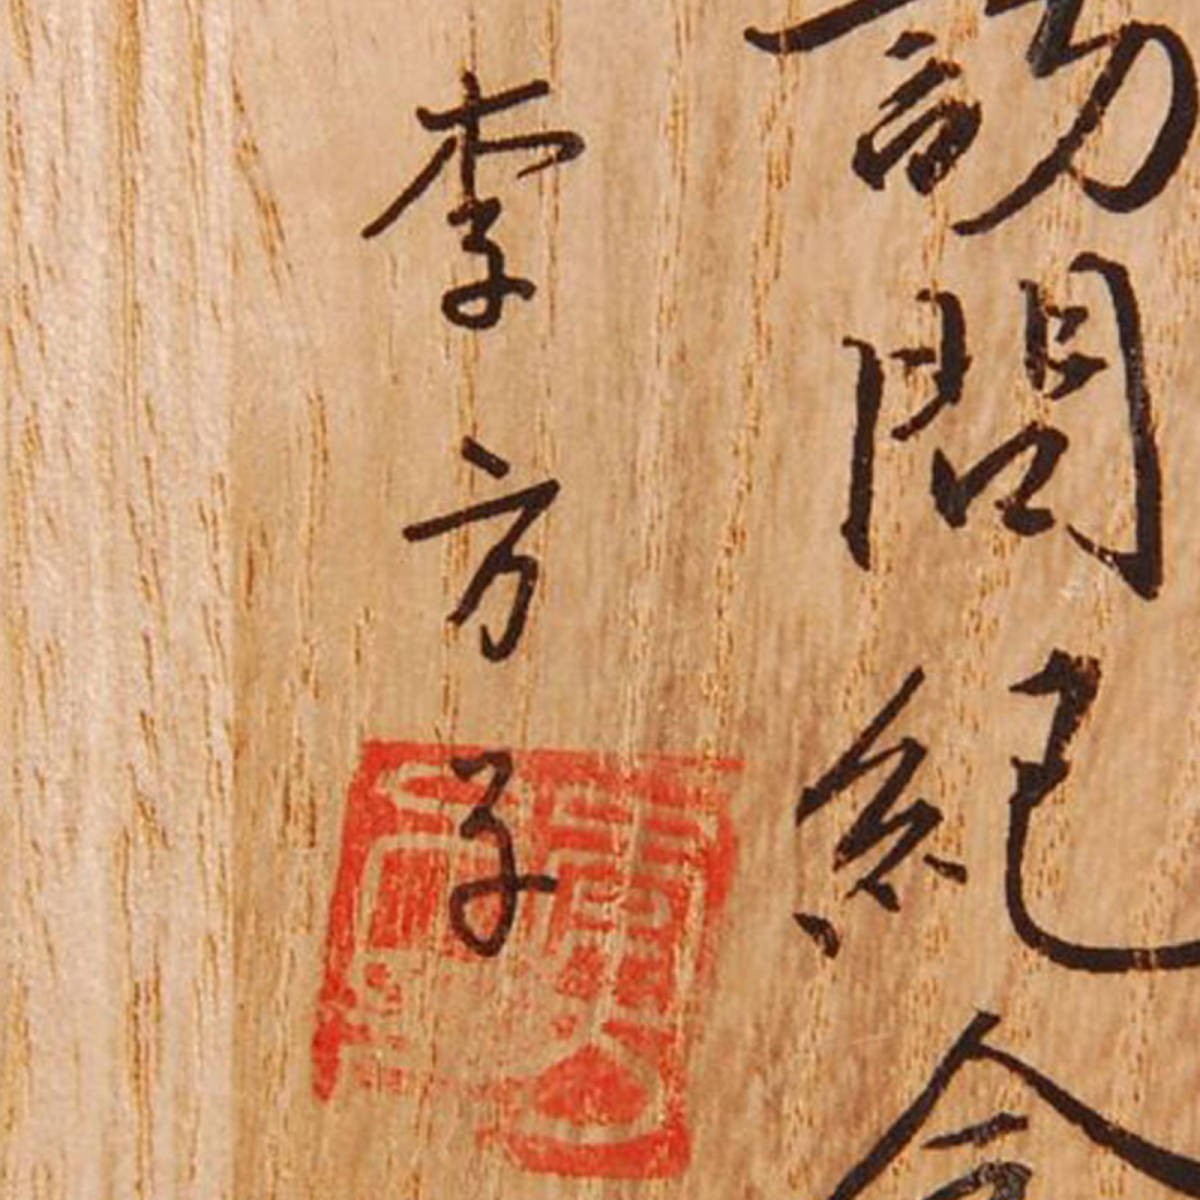 訪問紀念
李方子